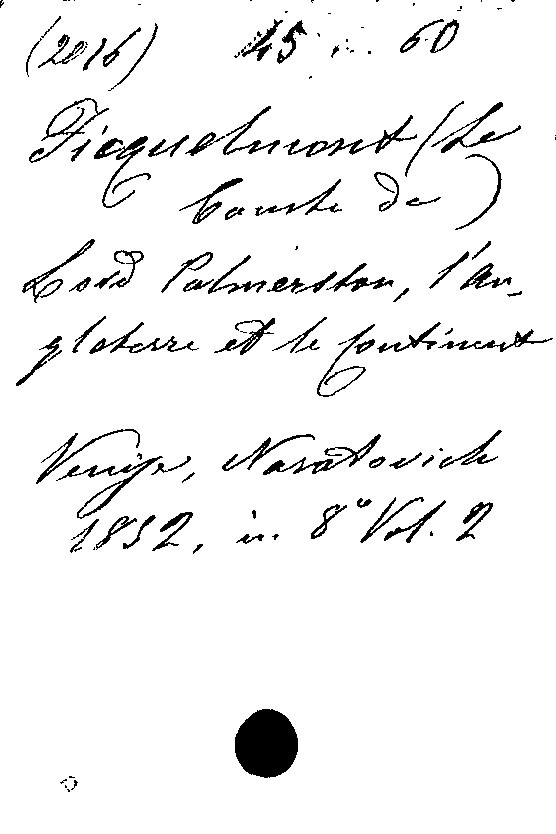 (2016) 45 . 60
Ficquelmont (Le
Comte de)
Lord Palmerston, l'An-
gleterre et le Continent
Venise, Naratovich
1852, in 8° Vol. 2